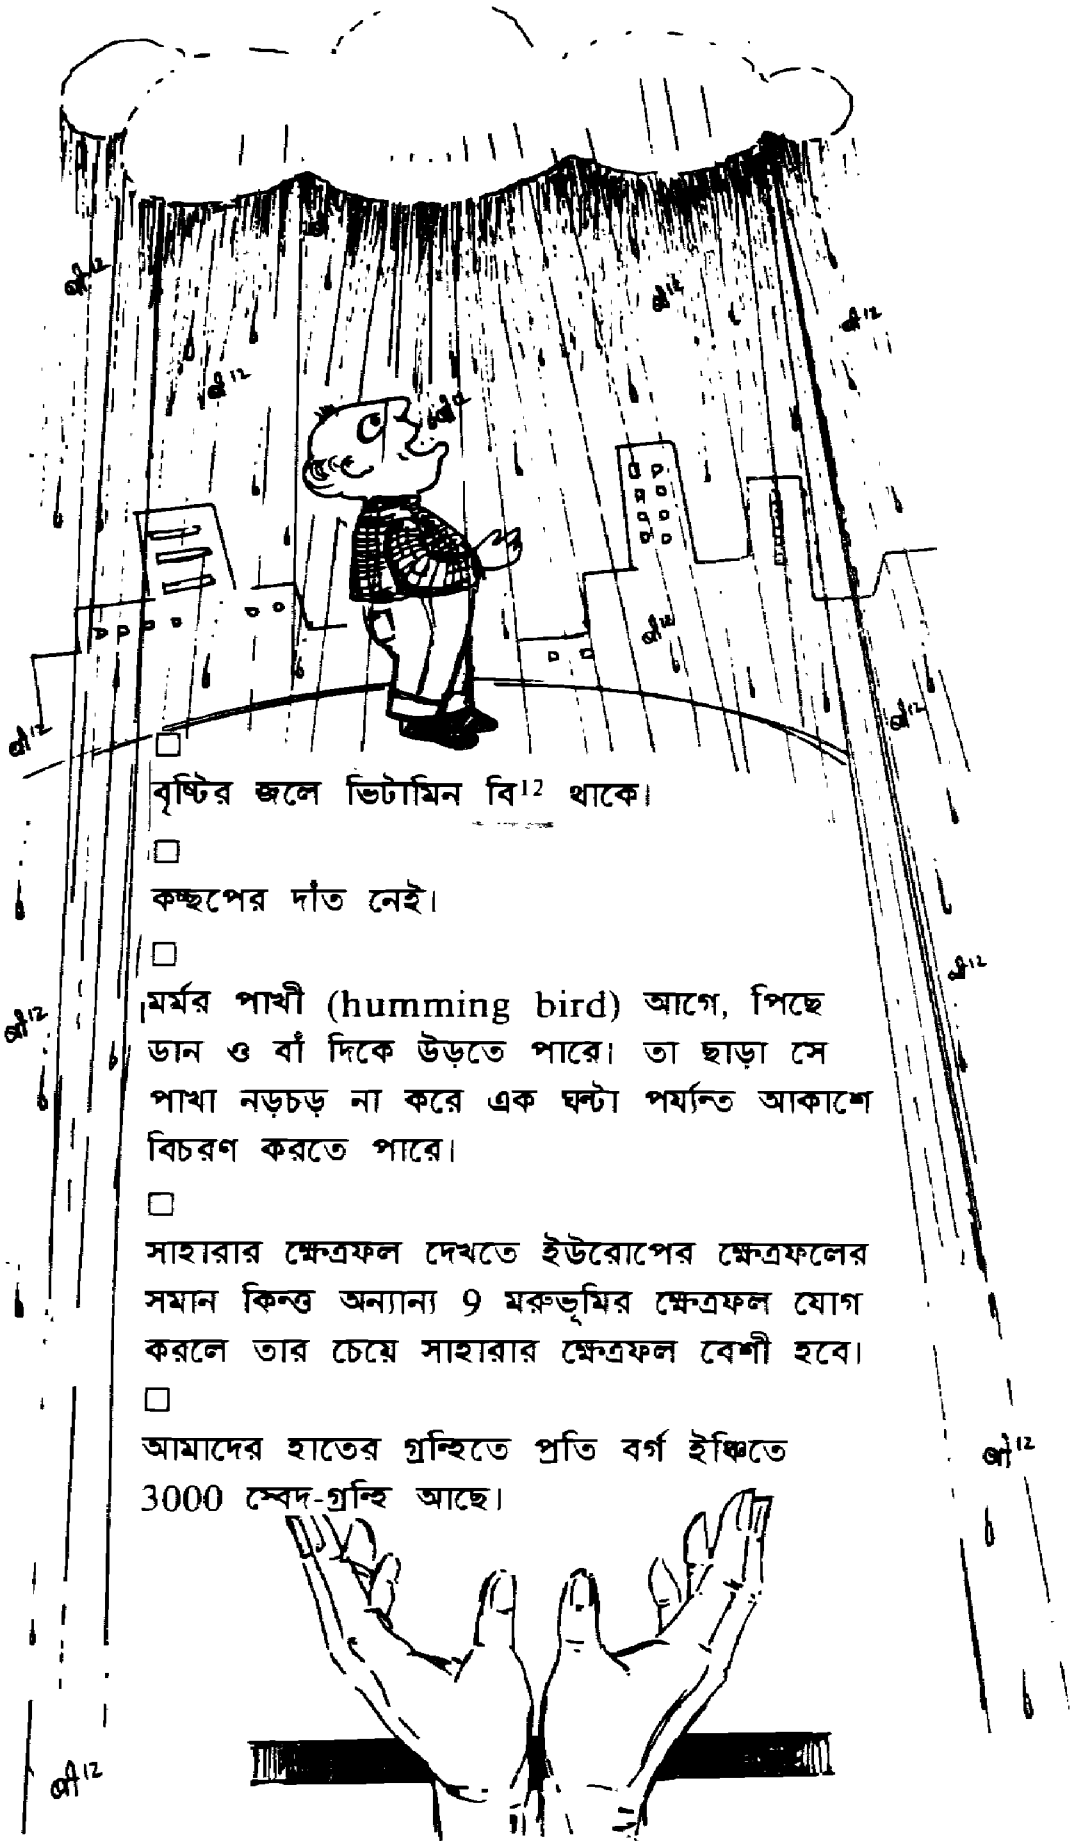 বী12
বী12
বী12
বী12
বী12
বী12
বী12
বী12
□
বৃষ্টির জলে ভিটামিন বি12 থাকে।
□
কচ্ছপের দাঁত নেই।
□
মর্মর পাখী (humming bird) আগে, পিছে
ডান ও বাঁ দিকে উড়তে পারে। তা ছাড়া সে
পাখা নড়চড় না করে এক ঘন্টা পর্যন্ত আকাশে
বিচরণ করতে পারে।
□
সাহারার ক্ষেত্রফল দেখতে ইউরোপের ক্ষেত্রফলের
সমান কিন্তু অন্যান্য 9 মরুভূমির ক্ষেত্রফল যোগ
করলে তার চেয়ে সাহারার ক্ষেত্রফল বেশী হবে।
□
আমাদের হাতের গ্রন্হিতে প্রতি বর্গ ইঞ্চিতে
3000 স্বেদ-গ্রন্হি আছে।
বী12
বী12
বী12
বী12